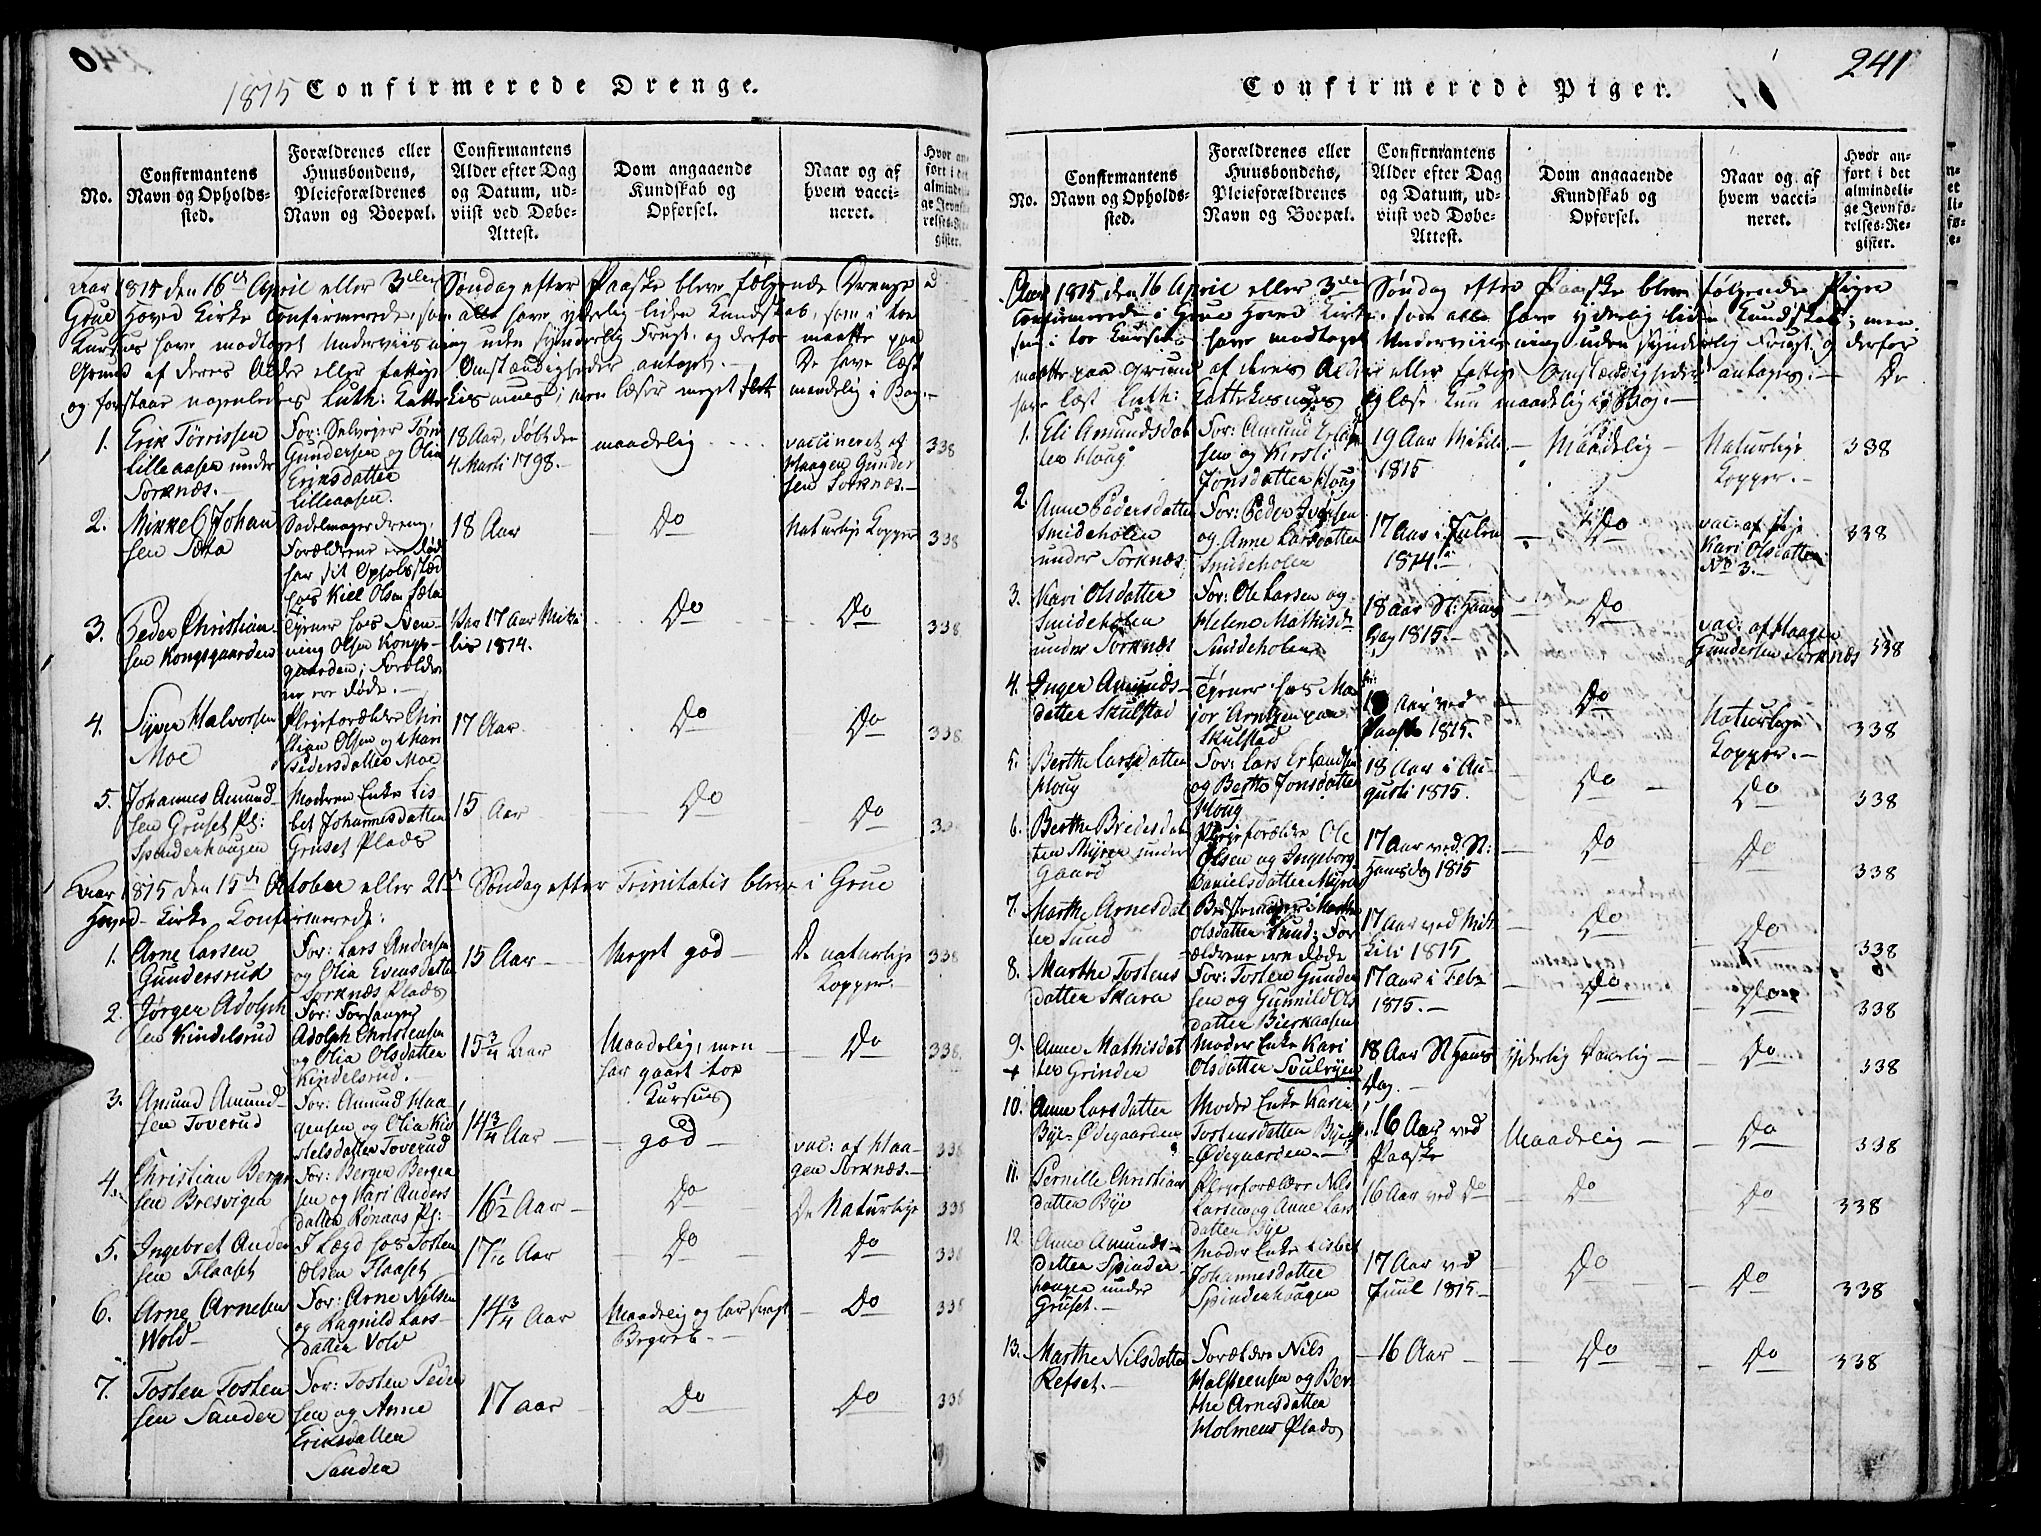 1815 Confirmerede Drenge.
No.
Confirmantens
Navn og Opholds-
sted.
Forældrenes eller
Huusbondens,
Pleieforældrenes
Navn og Boepæl.
Confirmantens
Alder efter Dag
og Datum, ud-
viist ved Døbe-
Attest.
Dom angaaende
Kundskab og
Opførsel.
Naar og af
hvem vacci-
neret.
Hvor an-
ført i det
almindeli-
ge Jevnfø-
relses-Re-
gister.
Aar 1815 den 16de April eller 3die Søndag efter Paaske bleve følgende Drenge i
Grue Hoved Kirke Confirmerede, som alle have yderlig liden Kundskab, som i toe
Kursus have modtaget Underviisning uden synderlig Frugt, og derfor maatte paa
Grund af deres Alder eller fattige Omstændigheder antages. — De have læst
og forstaar nogenledes Luth: Kattekismus; men læser meget slett maadelig i Bog.—
1. Erik Tørrissen
Lilleaasen under
Sorknæs.—
For: Selveyer Tørris
Gundersen og Olia
Eriksdatter
Lilleaasen.
18 Aar, døbt den
4 Marti 1798.—
maadelig
vaccineret af
Haagen Gunder
sen Sorknæs.—
338
2. Mikkel Johan
sen Sæta
Sadelmagerdreng,
Forældrene ere død
har sit Opholdsstæd
hos Kiel Olsen Sæta
18 Aar
Do
Naturlije Kopper
338
3. Peder Christian
sen Kongsgaarden
Tyener hos Sven
ning Olsen Kongs-
gaarden; Forældre
ne ere døde.—
Var 17 Aar Mikke
lis 1814.
Do
Do
338
4. Syver Halvorsen
Moe
Plejeforældre Chri
stian Olsen og Mari
Pedersdatter Moe
17 Aar
Do
Do
338
5. Johannes Amund-
sen Gruset Pl:
Spenderhaugen
Moderen Enke Lis
bet Johannesdatter
Gruset Plads
15 Aar
Do
Do
338
Aar 1815 den 15de October eller 21de Søndag efter Trinitatis bleve i Grue
Hoved-Kirke Konfirmerede:
1. Arne Larsen
Gundersrud
For: Lars Andersen
og Olia Evensdatter
Sorknæs Plads
15 Aar —
Meget god —
De naturlige
Kopper.—
338
2. Jørgen Adolph
sen Kindelsrud
For: Forsanger
Adolph Christensen
og Olia Olsdatter
Kindelsrud.
15 3/4 Aar
Maadelig, men
har gaaet toe
Kursus
Do
338.
3. Amund Amund-
sen Toverud
For: Amund Haa
gensen og Olia Kit
telsdatter Toverud
14 3/4 Aar —
god —
vac: af Haa-
gen Sorknæs.—
338
4. Christian Berger
sen Bresvigen
For: Berger Berger
sen og Kari Anders
datter Rønaas Pl:
16 1/2 Aar —
Do
De Naturlige
338
5. Ingebret Ander
sen Flaaset
I Lægd hos Tosten
Olsen Flaaset
17 1/12 Aar
Do
Do
338
6. Arne Arnesen
Wold —
For: Arne Nilsen
og Ragnild Lars-
datter Vold
14 3/4 Aar
Maadelig og har svagt
Begreb.—
Do
338
7. Tosten Tosten
sen Sander
For: Tosten Peder
sen og Anne
Eriksdatter
Sander
17 aar
Do
Do
338
Confirmerede Piger.
241
No.
Confirmantens
Navn og Opholds-
sted.
Forældrenes eller
Huusbondens,
Pleieforældrenes
Navn og Boepæl.
Confirmantens
Alder efter Dag
og Datum, ud-
viist ved Døbe-
Attest.
Dom angaaende
Kundskab og
Opførsel.
Naar og af
hvem vacci-
neret.
Hvor an-
ført i det
almindeli-
ge Jevnfø-
relses-Re-
gister.
Aar 1815 den 16 April eller 3die Søndag efter Paaske bleve følgende Piger
Confirmerede i Grue Hoved Kirke, som alle have yderlig liden Kundskab; men
som i toe Kursus have modtaget Underviisning uden synderlig Frugt, og derfor
maatte paa Grund af deres Alder eller fattige Omstændigheder antages.— De
have læst Luth: Kattekismus og læse kun maadelig i Bog.—
1. Eli Amundsdat
ter Houg
For: Amund Erland
sen og Kirsti
Jonsdatter Houg
19 Aar Mikili
1815
Maadelig —
Naturlige
Kopper.—
338
2. Anne Pedersdatter
Smideholen
under Sorknæs
For: Peder Iversen
og Anne Larsdatter
Smideholen
17 Aar i Julen
1814.—
Do
vac: af
Kari Olsdatter
No 3.—
338
3. Kari Olsdatter
Smideholen
under Sorknæs
For: Ole Larsen og
Helene Mathisda
Smideholen
18 aar St: Hans
Dag 1815.—
Do
vac: af Haagen
Gundersen Sorknæs
338
4. Inger Amunds-
datter Skulstad
Tyener hos Ma
jor Arntzen paa
Skulstad
Aar ved
Paaske 1815.
Do
Naturlige
Kopper.—
338
5. Berthe Larsdatter
Houg
For: Lars Erlandsen
og Berthe Jonsdatter
Houg
18 Aar i Au-
gusti 1815.
Do
Do
338
6. Berthe Bredesdat
ter Myren under
Gaard
Plejeforældre Ole
Olsen og Ingeborg
Danielsdatter Myren
17 Aar ved St:
Hansdag 1815
Do
Do
338
7. Marthe Arnesdat
ter Lund
Bedstemoder: Marthe
Olsdatter Lund; For
ældrene ere døde
17 Aar ved Mik
kili 1815
Do
Do
338
8. Marthe Tostens
datter Skara
For: Tosten Gunder
sen og Gunnild Ols
datter Bierkaasen
17 Aar i Feb:
1815.—
Do
Do
338
9. Anne Mathisdat
ter Grinder
Moder Enke Kari
Olsdatter Svulryen
18 Aar St Hans
Dag.—
yderlig daarlig —
Do
338
10. Anne Larsdatter
Bye-Ødegaarden
Moder Enke Karen
Tostensdatter Bye
Ødegaarden.—
16 Aar ved
Paaske
Maadelig —
Do
338
11. Pernille Christians
datter Bye
Plejeforældre Nils
Larsen og Anne Lars
datter Bye
16 Aar ved Do
Do
Do
338
12. Anne Amunds-
datter Spinder
haugen under
Gruset.—
Moder Enke Lisbet
Johannesdatter
Spinderhaugen
17 Aar ved
Juul 1815—
Do
Do
338
13. Marthe Nilsdatter
Refset.—
Forældre Nils
Halsteensen og Ber
the Arnesdatter
Holmens Plads
16 Aar
Do
Do
338